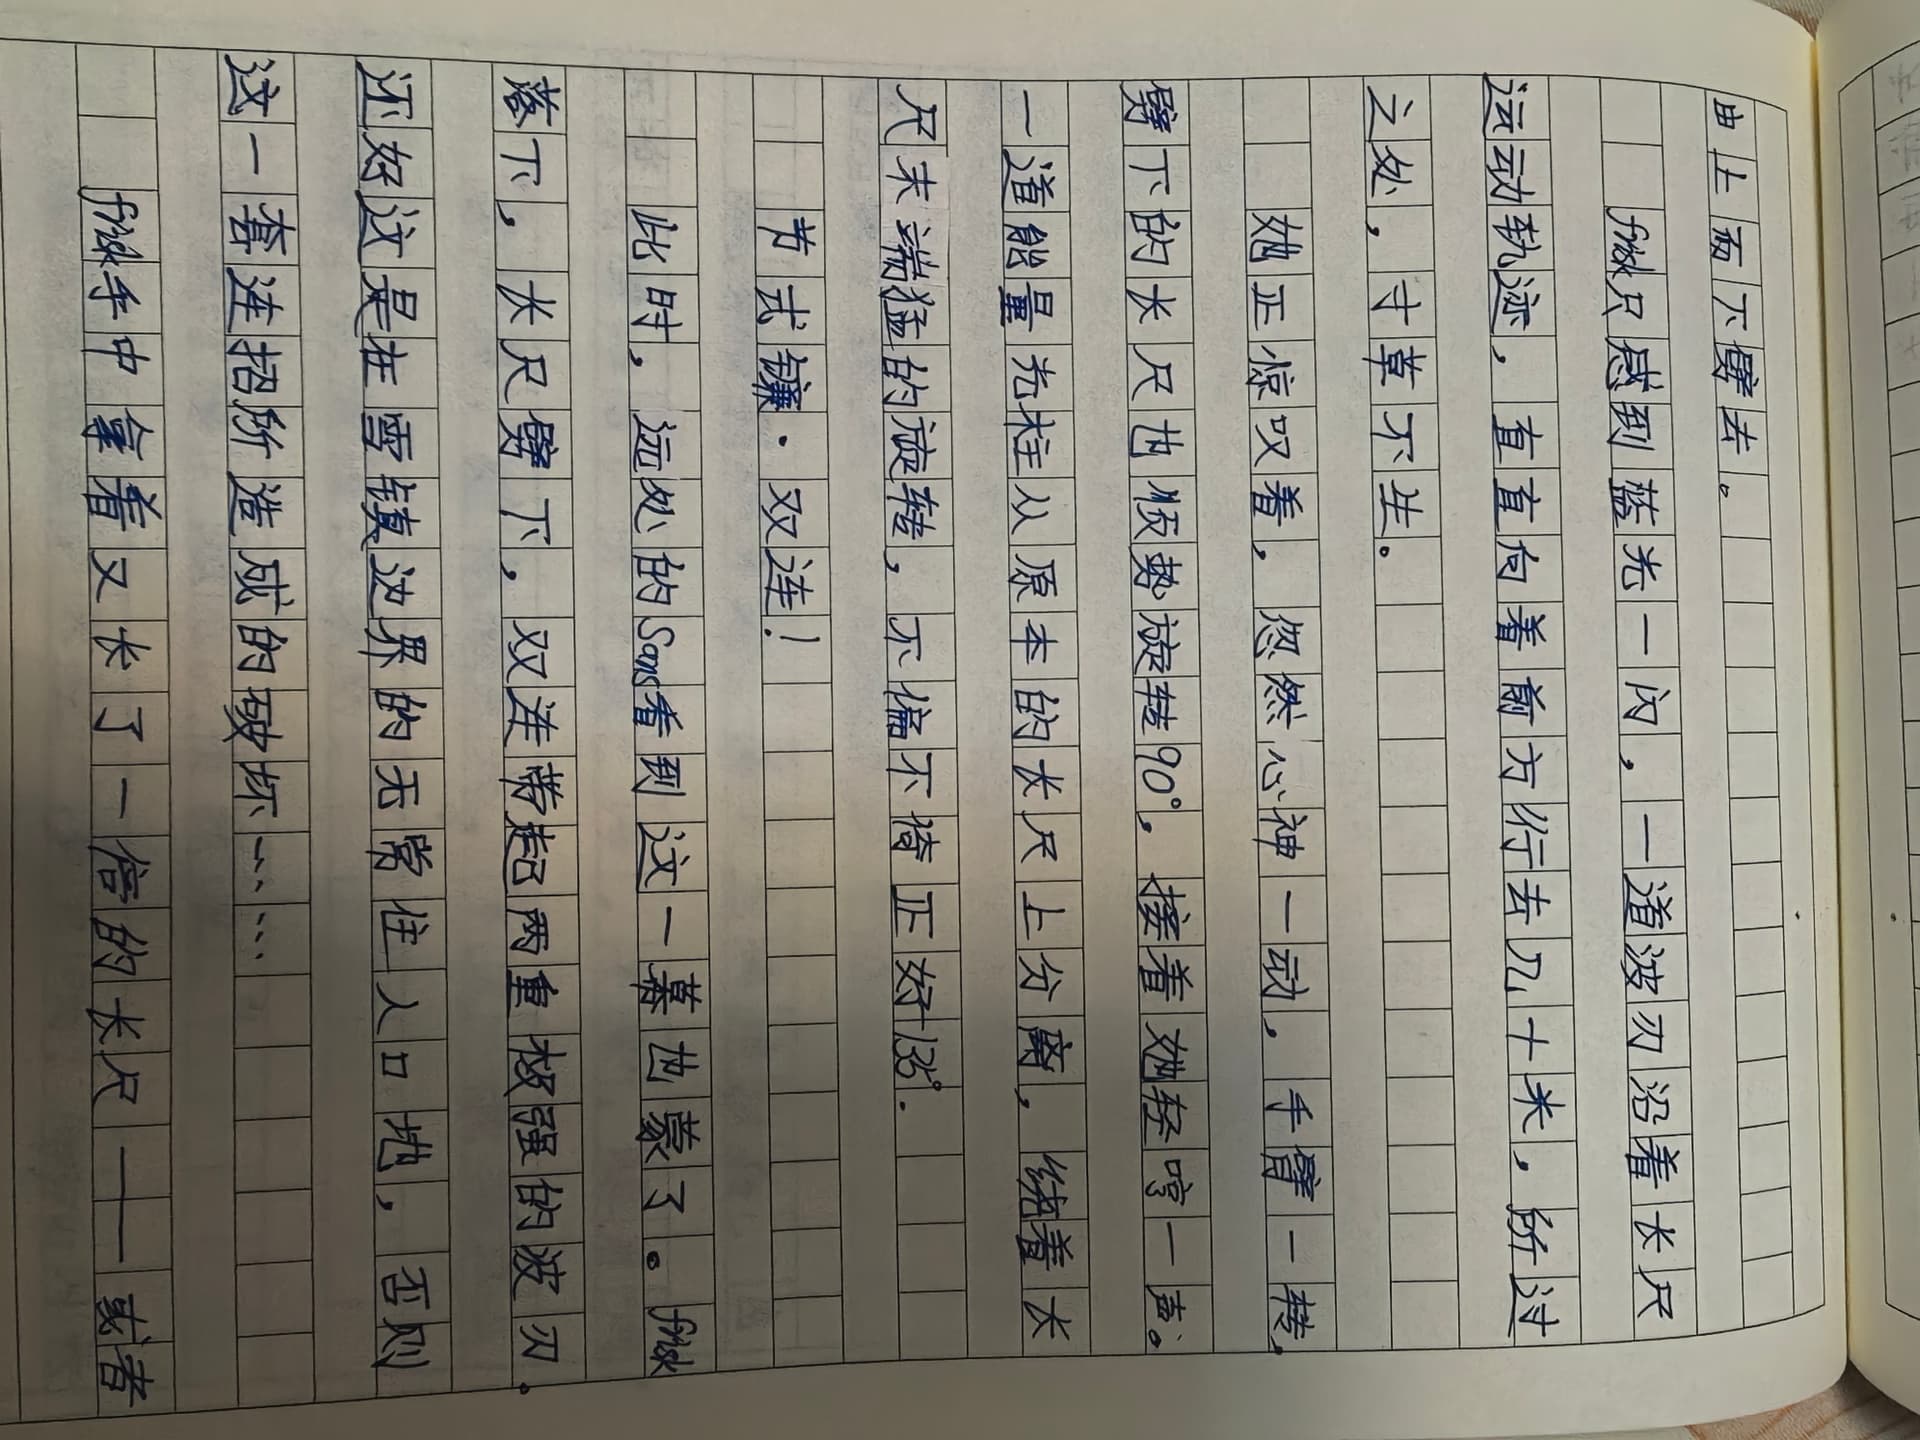 由上而下劈去。
frisk只感到蓝光一闪，一道波刃沿着长尺
运动轨迹，直直向着前方行去几十米，所过
之处，寸草不生。
她正惊叹着，忽然心神一动，手臂一转，
劈下的长尺也顺势旋转90°，接着她轻哼一声。
一道能量光柱从原本的长尺上分离，绕着长
尺末端猛的旋转，不偏不倚正好135°.
节式镰·双连！
此时，远处的Sans看到这一幕也蒙了。frisk
落下，长尺劈下，双连带起两重极强的波刃.
还好这是在雪镇边界的无常住人口地，否则
这一套连招所造成的破坏……
frisk手中拿着又长了一倍的长尺——或者